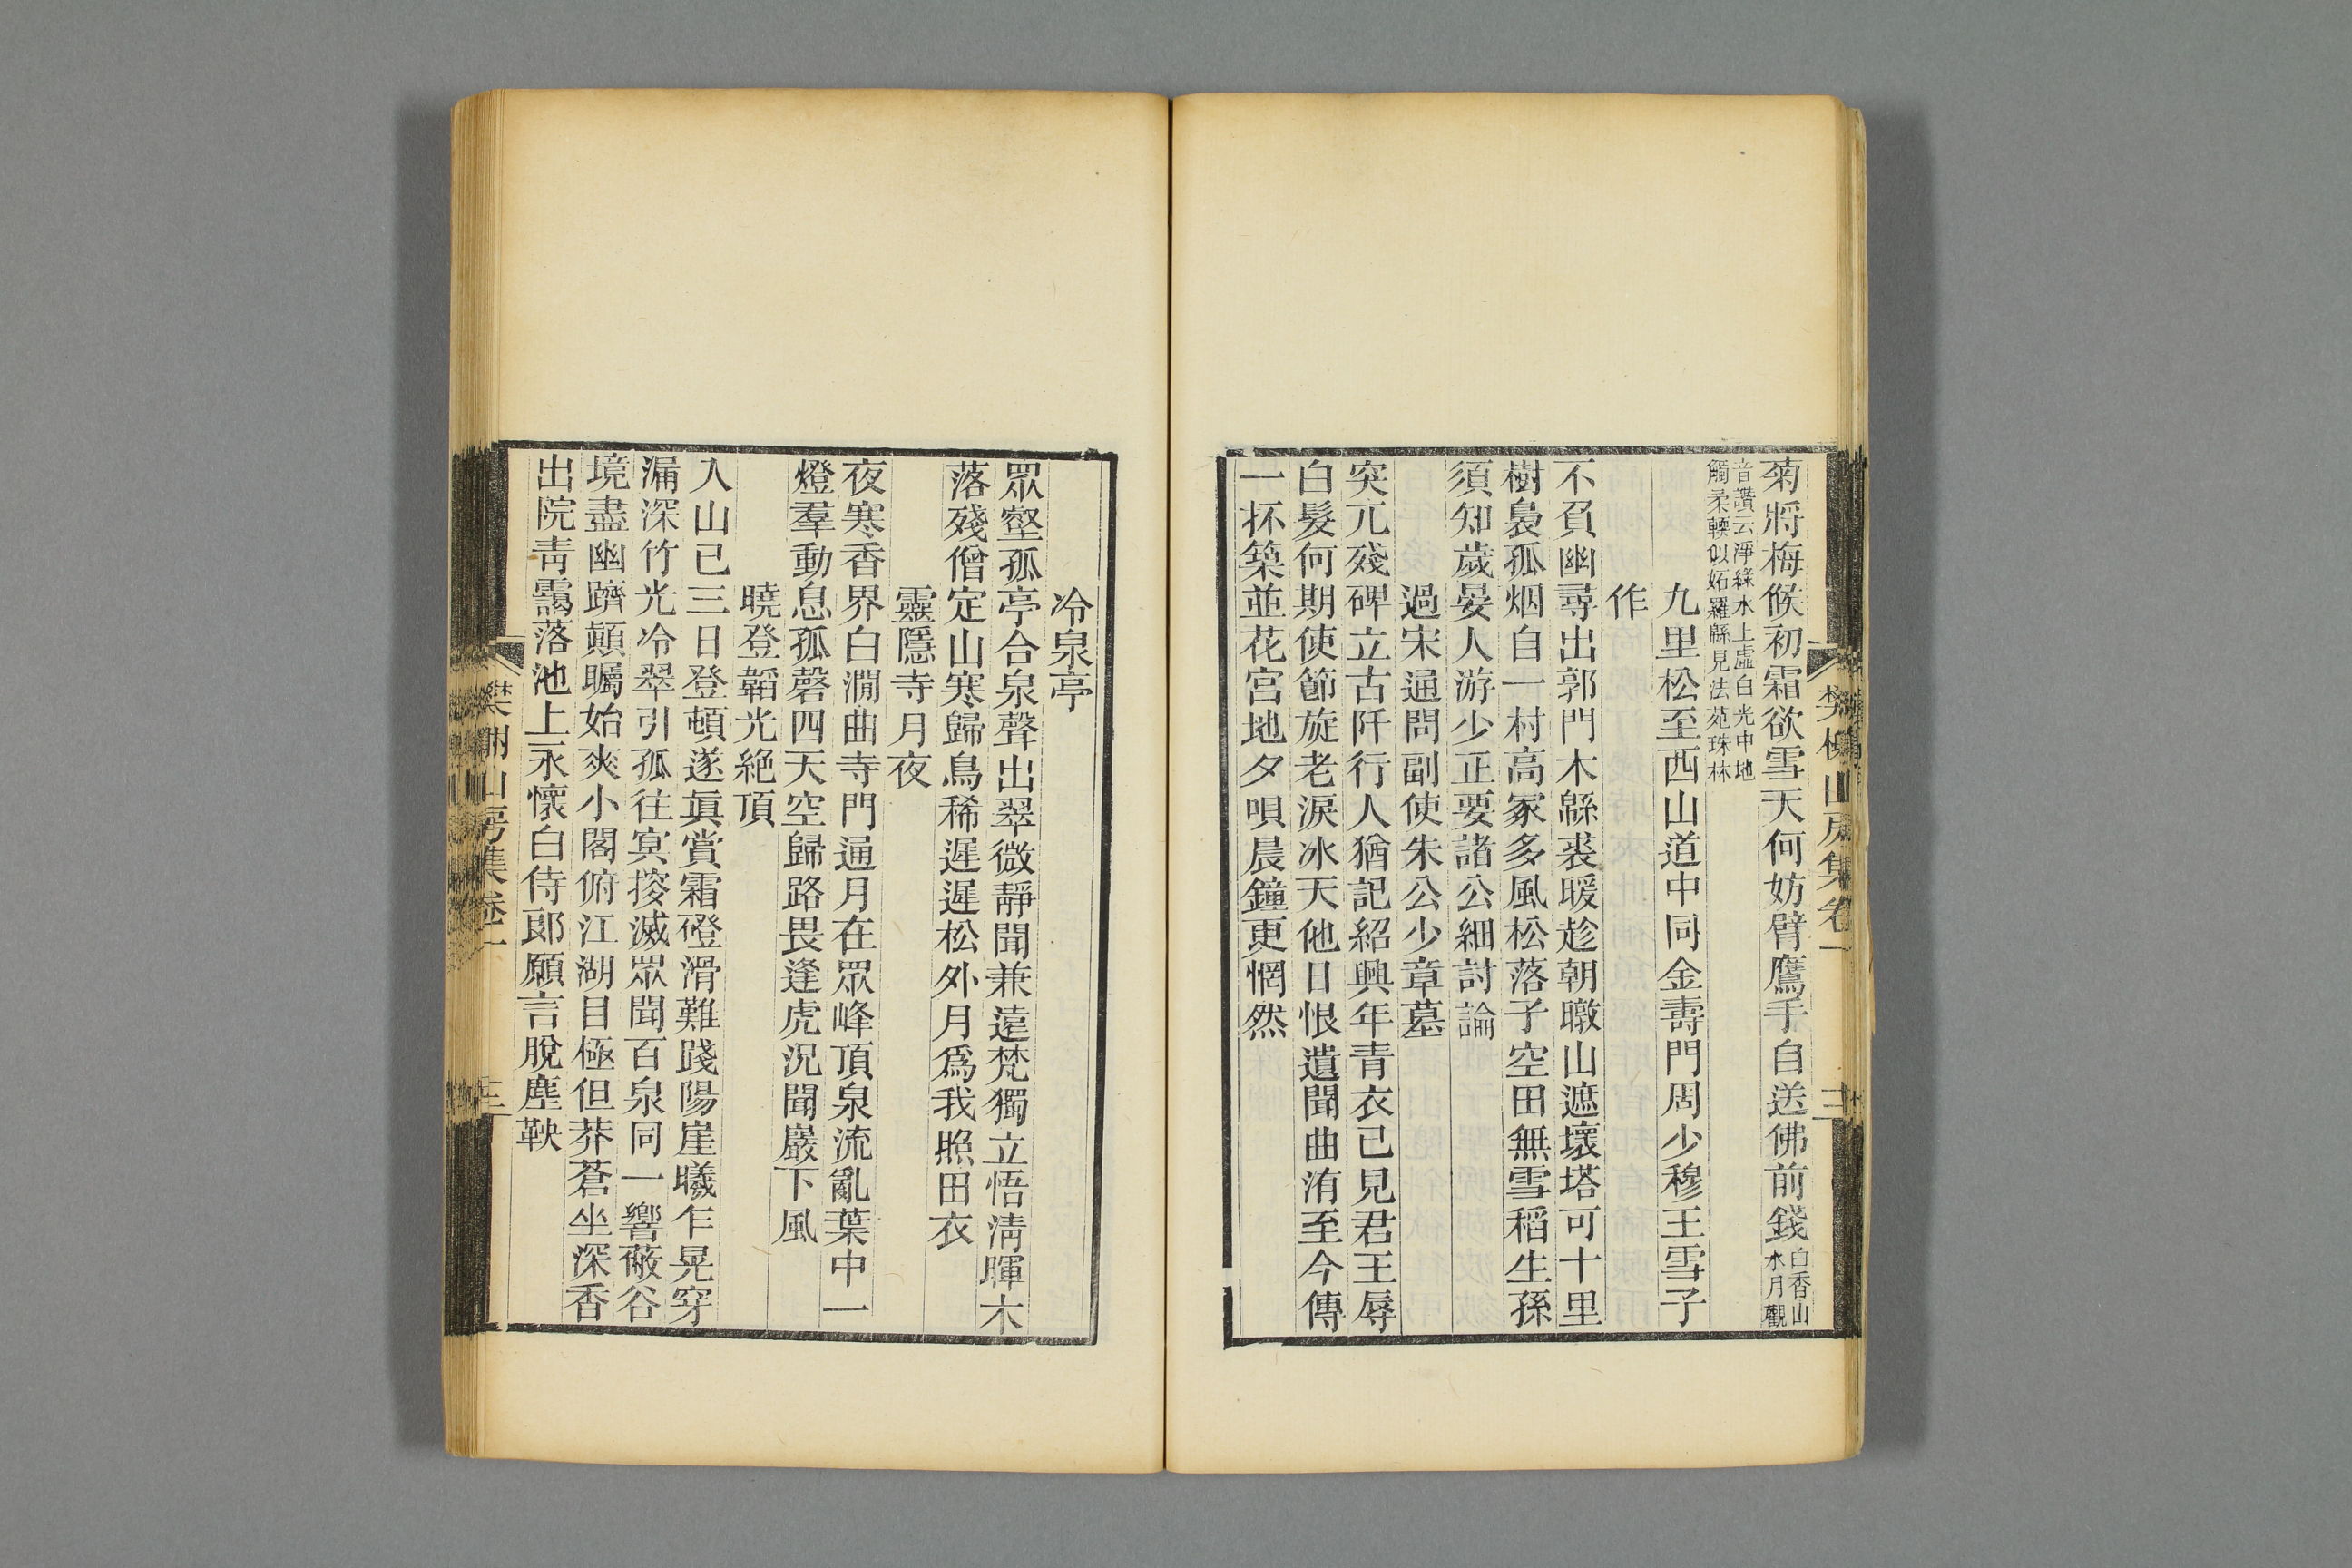 菊將梅候初霜欲雪天何妨臂鷹手自送佛前錢白香山水月觀
音讚云淨綠水上虛白光中地
觸柔輭似妬羅緜見法苑珠林
九里松至西山道中同金壽門周少穆王雪子
作
不負幽尋出郭門木緜裘暖趁朝暾山遮壞塔可十里
樹裊孤烟自一村高冢多風松落子空田無雪稻生孫
須知歲晏人游少正要諸公細討論
過宋通問副使朱公少章墓
突兀殘碑立古阡行人猶記紹興年青衣已見君王辱
白髮何期使節旋老淚冰天他日恨遺聞曲洧至今傳
一抔築並花宮地夕唄晨鐘更惘然
樊榭山房集卷一
冷泉亭
眾壑孤亭合泉聲出翠微靜聞兼遠梵獨立悟淸暉木
落殘僧定山寒歸鳥稀遲遲松外月爲我照田衣
靈隱寺月夜
夜寒香界白澗曲寺門通月在眾峰頂泉流亂葉中一
燈羣動息孤磬四天空歸路畏逢虎況聞巖下風
曉登韜光絶頂
入山已三日登頓遂眞賞霜磴滑難踐陽崖曦乍晃穿
漏深竹光冷翠引孤往冥搜滅眾聞百泉同一響蔽谷
境盡幽躋顛矚始爽小閣俯江湖目極但莽蒼坐深香
出院靑靄落池上永懷白侍郞願言脫塵鞅
山房集卷一